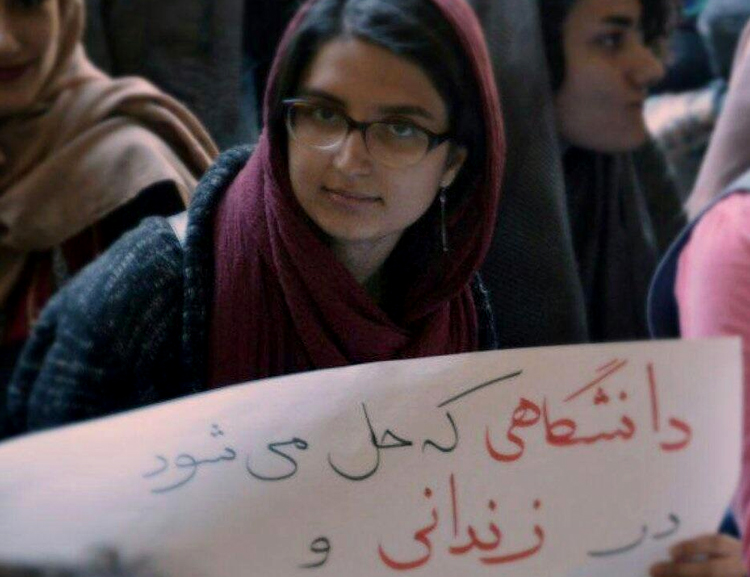 دانشگاهی که حل می‌شود
در زندانی و